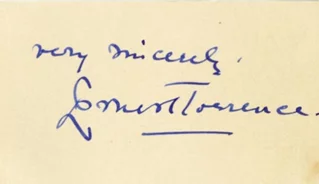 very sincerely.
Ernest Torrence.